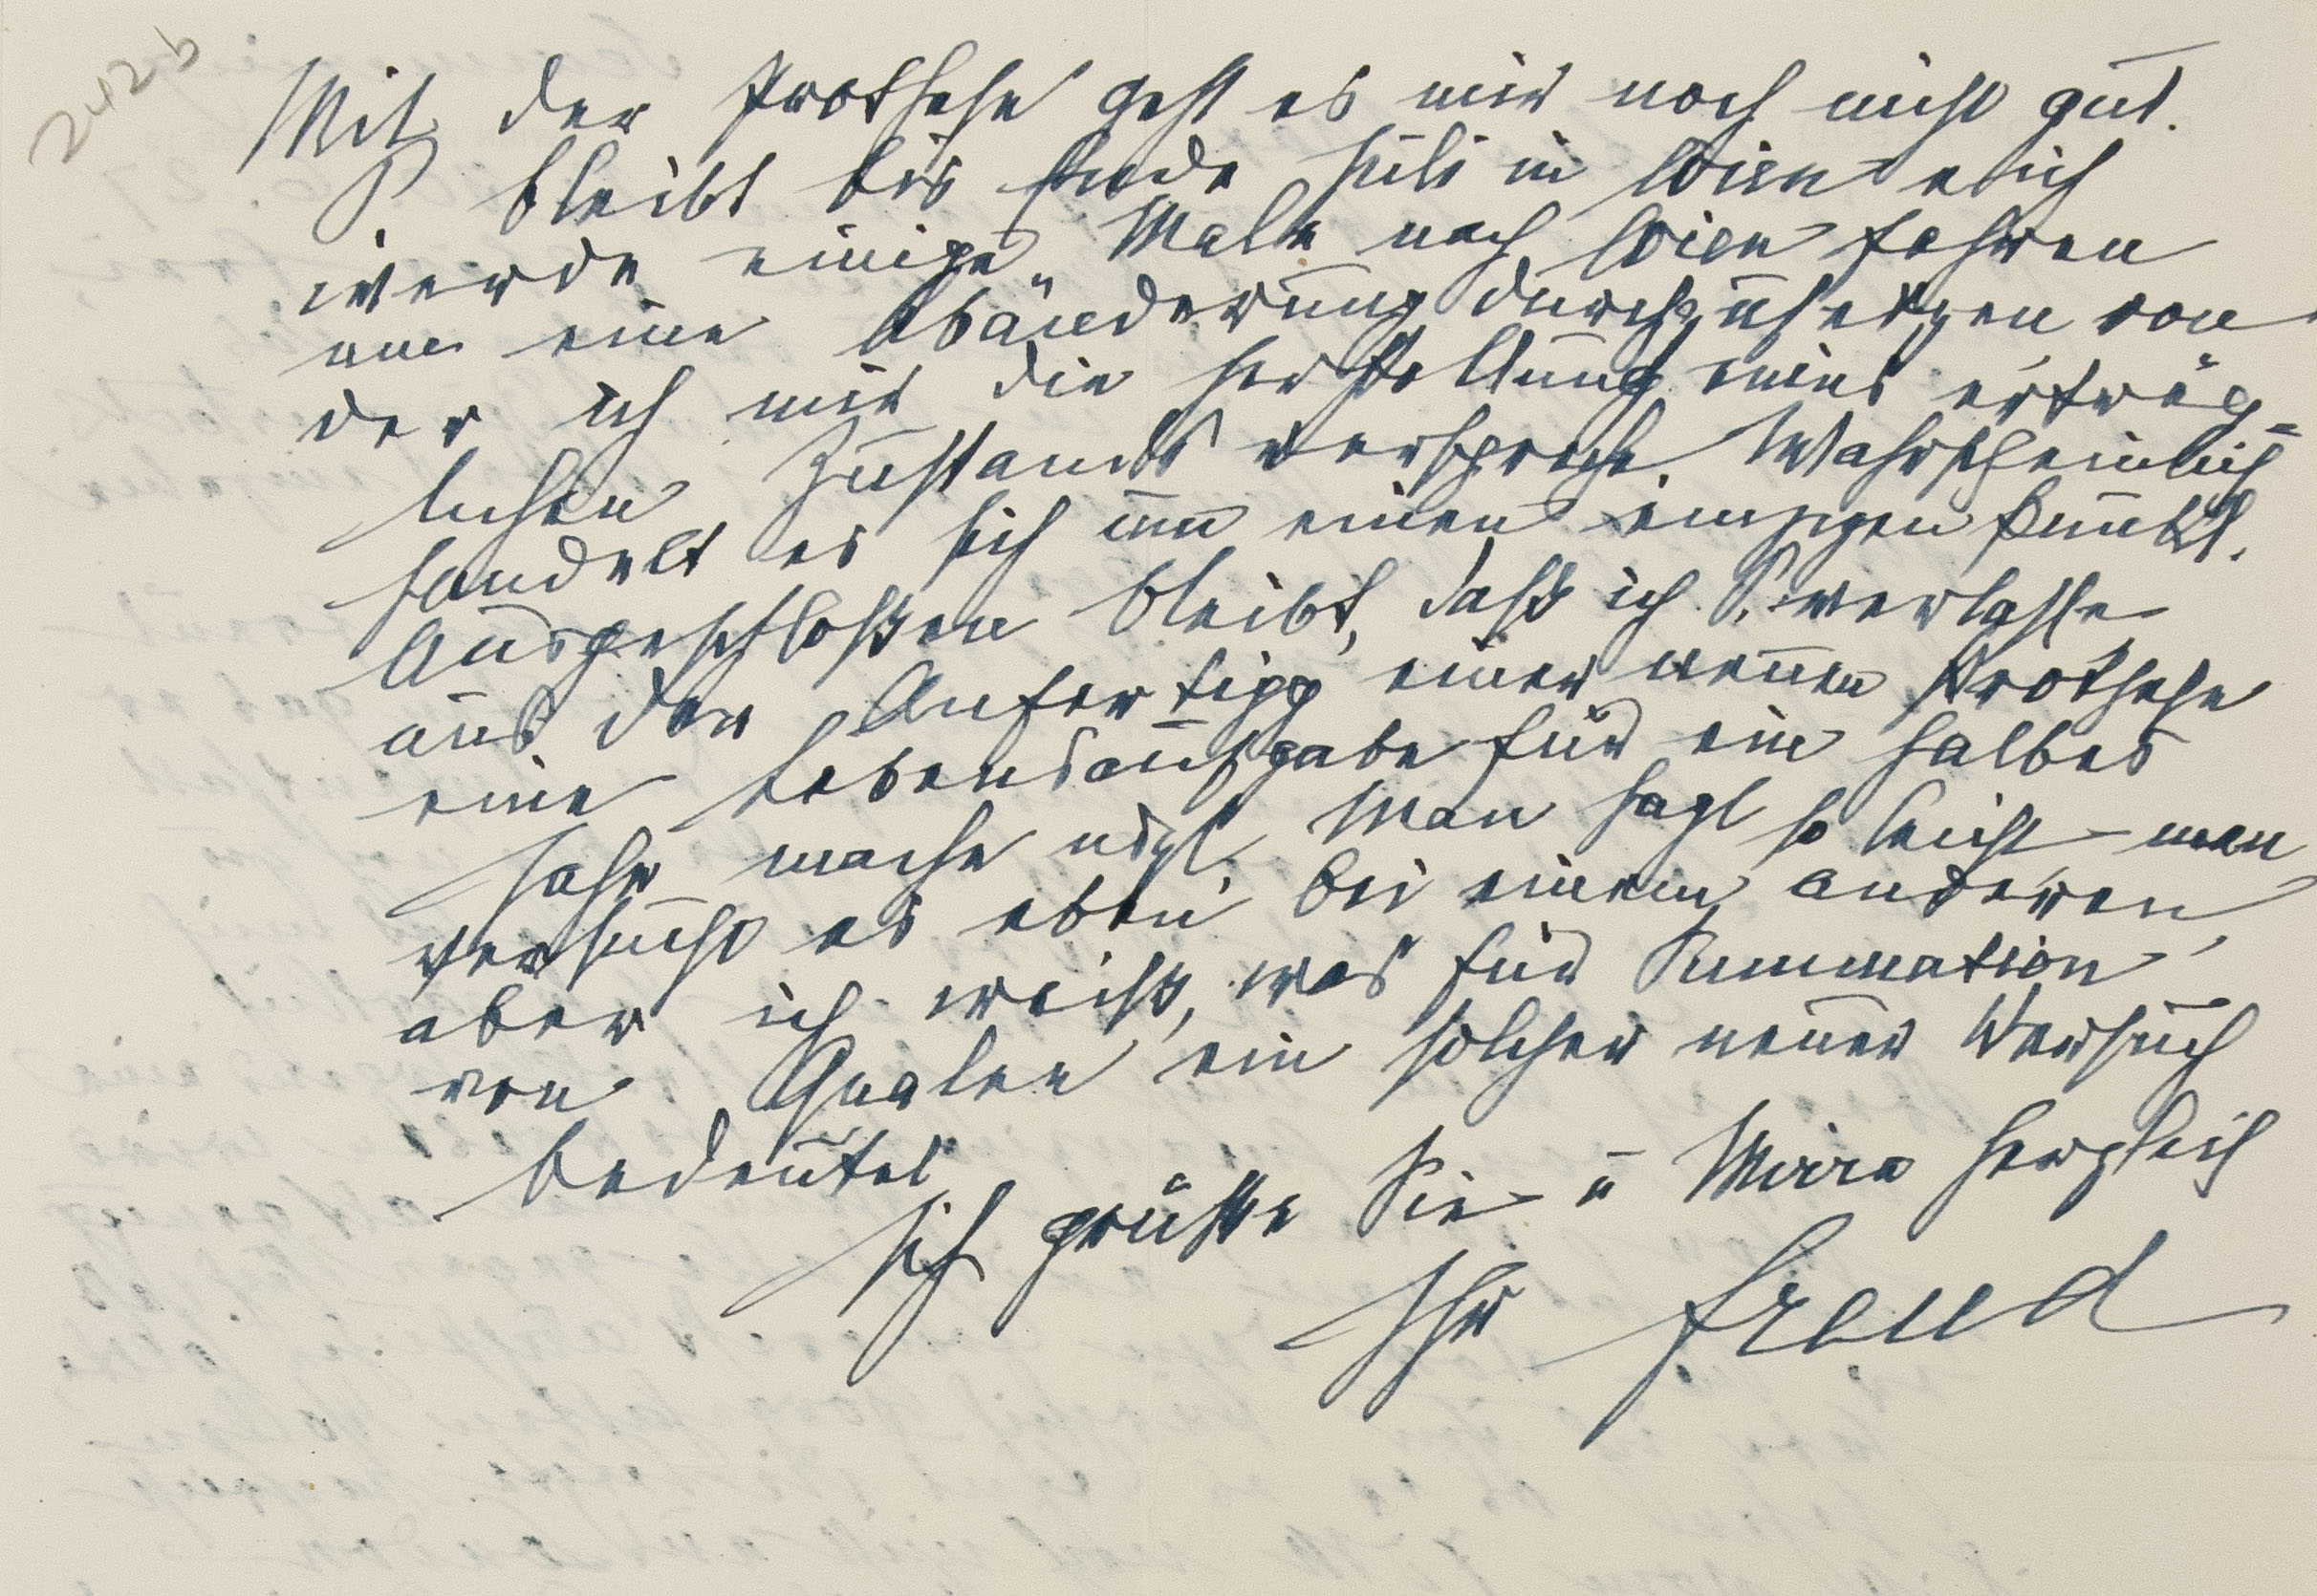 242 b
Mit der Prothese geht es mir noch nicht gut.
P bleibt bis Ende Juli in Wien u ich
werde einige Male nach Wien fahren
um eine Abänderung durchzusetzen von
der ich mir die Herstellung eines erträg-
lichen Zustands verspreche. Wahrscheinlich
handelt es sich um einen einzigen Punkt.
Ausgeschloßen bleibt, daß ich P. verlasse
aus der Anfertigg einer neuen Prothese
eine Lebensaufgabe für ein halbes
Jahr mache udgl. Man sagt so leicht man
versucht es eben bei einem anderen,
aber ich weiß, was für Summation
von Qualen ein solcher neuer Versuch
bedeutet
Ich grüße Sie u Mirra herzlich
Ihr Freud